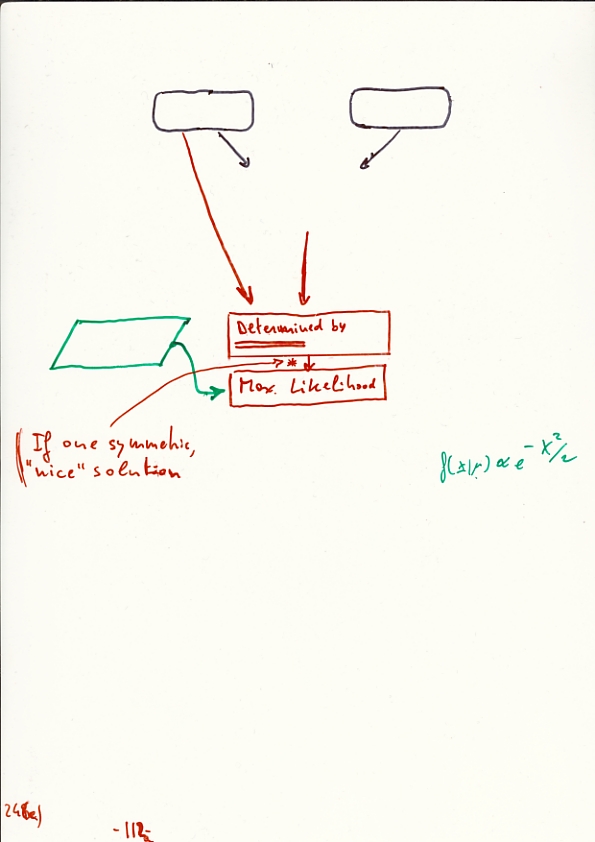 Determined by
*
Max. Likelihood
If one symmetric,
"nice" solution
f(x|μ) ∝ e^{-x²/2}
-112-